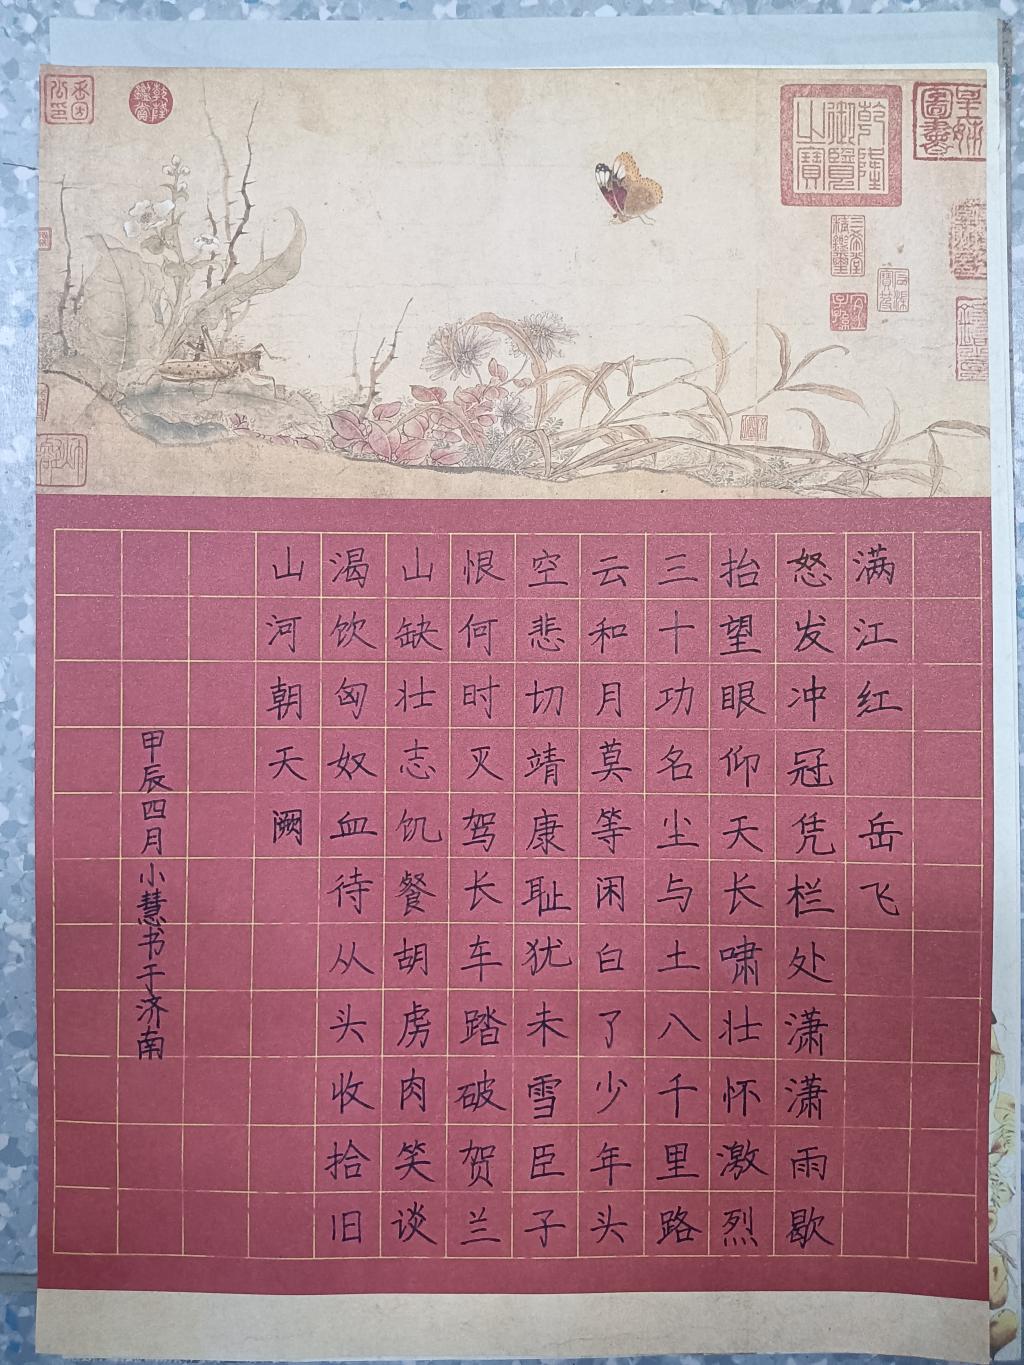 乾隆御覽之寶
乾隆鑒賞
三希堂精鑑璽
宜子孫
满江红 岳飞
怒发冲冠凭栏处潇潇雨歇
抬望眼仰天长啸壮怀激烈
三十功名尘与土八千里路
云和月莫等闲白了少年头
空悲切靖康耻犹未雪臣子
恨何时灭驾长车踏破贺兰
山缺壮志饥餐胡虏肉笑谈
渴饮匈奴血待从头收拾旧
山河朝天阙
甲辰四月小慧书于济南